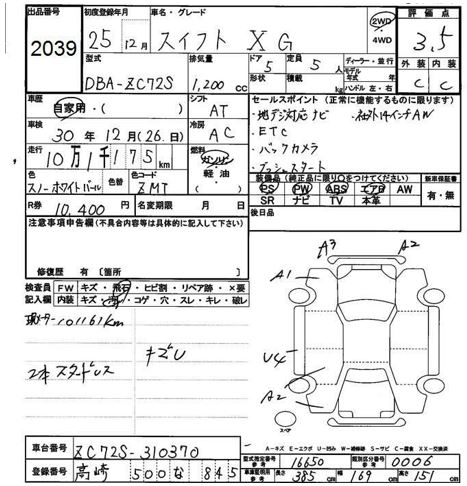 出品番号 初度登録年月 車名・グレード 評価点
2039 25年12月 スイフト XG 2WD 4WD 3.5
型式 排気量 ドア 定員 ディーラー・並行 外装 内装
DBA-ZC72S 1,200 cc 5 5人 モデル 年式 年
形状 積載 kg ハンドル 左・右 C C
車歴 自家用・( ) シフト AT セールスポイント (正常に機能するものに限ります)
車検 30年12月(26日) 冷房 AC ・地デジ対応ナビ ・社外14インチAW
・ETC
走行 10万1千175km 燃料 ガソリン 軽油 ・バックカメラ
・プッシュスタート
色 スノーホワイトパール 色替 色コード ZMT
装備品(純正品に限り○をつけてください) 新車保証書
PS PW ABS エアB AW 有・無
SR ナビ TV 本革
R券 10,400円 名変期限 月 日
注意事項申告欄(不具合内容等は具体的に記入して下さい) 後日品
修復歴 有 [箇所
検査員記入欄 FW キズ・飛石・ヒビ割・リペア跡・×要
内装 キズ・コゲ・穴・スレ・キレ・破レ
A3 A2
A1
U4
A2
101161km
2本スタッドレス
キズU
スペア
A-キズ E-エクボ U-凹み W-補修跡 S-サビ C-腐食 XX-交換済
車台番号 ZC72S-310370
型式指定番号 参考 16650 類別区分番号 参考 0006
登録番号 高崎 500 な 845
車検証明用 参考 長さ 385cm 幅 169cm 高さ 151cm